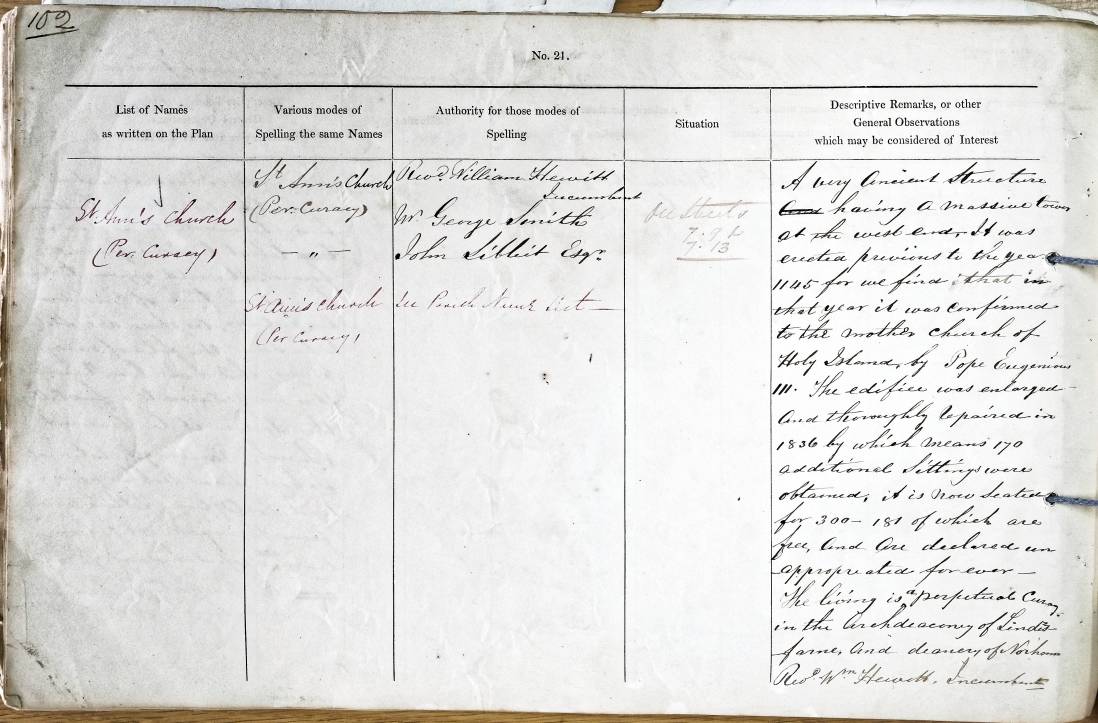 102
No. 21.
List of Names
as written on the Plan
Various modes of
Spelling the same Names
Authority for those modes of
Spelling
Situation
Descriptive Remarks, or other
General Observations
which may be considered of Interest
St. Ann's Church
(Per. Curacy)
St. Ann's Church
(Per. Curacy)
— „ —
St. Ann's Church
(Per Curacy)
Revd. William Hewitt
Incumbent
Mr. George Smith
John Sibbit Esqr.
See Parish Name list —
See Sheets
7.13
A very Ancient Structure
having a massive tower
at the west end, It was
erected previous to the year
1145 for we find that in
that year it was confirmed
to the mother Church of
Holy Island, by Pope Eugenius
III. The edifice was enlarged
And thoroughly repaired in
1836 by which means 170
additional Sittings were
obtained, it is now Seated
for 300 - 181 of which are
free, And Are declared un
-appropriated for ever -
The living is a perpetual Curacy
in the Archdeaconry of Lindis
farne, And deanery of Norham
Revd. Wm Hewitt. Incumbent